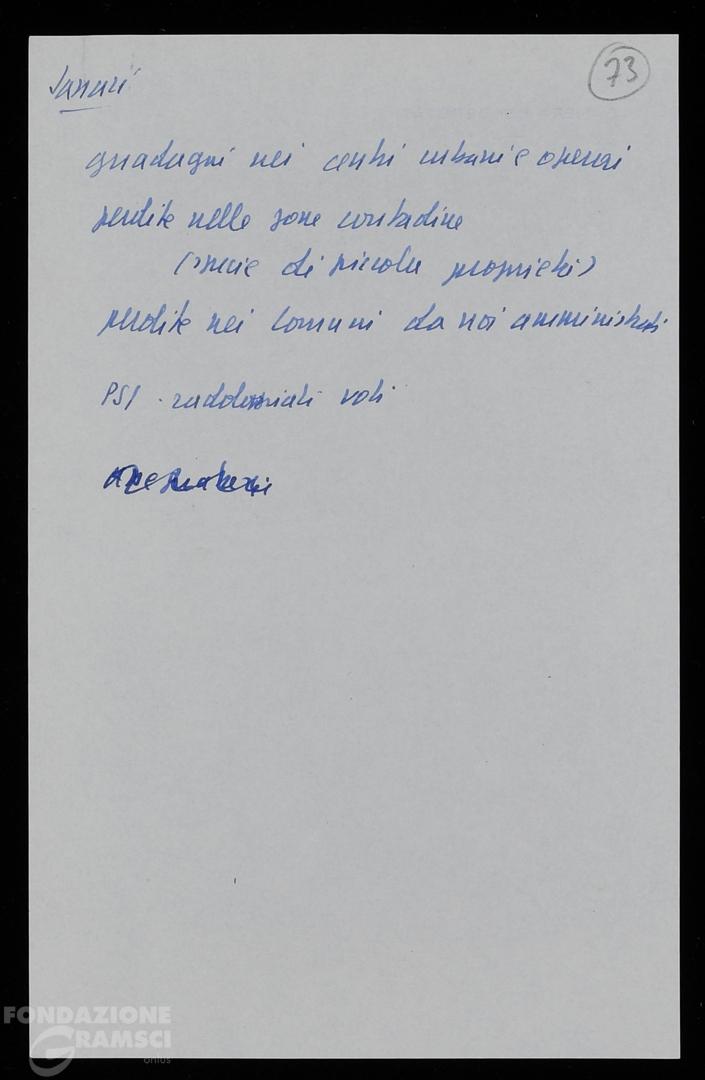 Sassari
73
guadagni nei centri urbani e operai
perdite nelle zone contadine
(specie di piccola proprietà)
perdite nei Comuni da noi amministrati
PSI - raddoppiati voti
FONDAZIONE
GRAMSCI
onlus